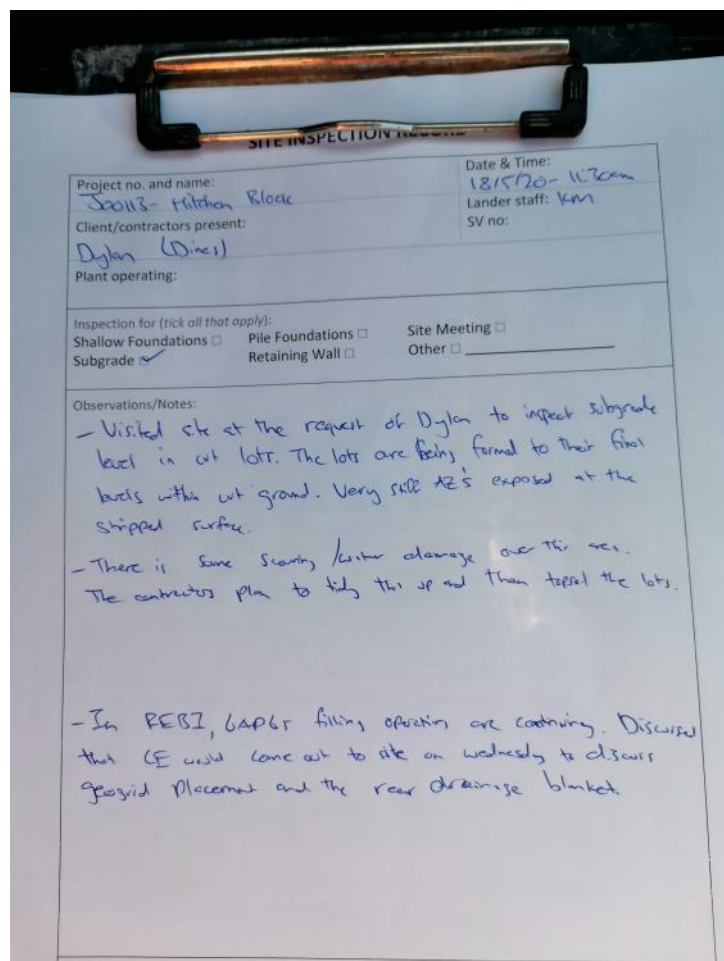 SITE INSPECTION RECORD
Project no. and name:
J00113- Hitchen Block
Date & Time:
18/5/20- 11:30am
Lander staff: KM
Client/contractors present:
SV no:
Dylan (Dines)
Plant operating:
Inspection for (tick all that apply):
Shallow Foundations ☐ Pile Foundations ☐ Site Meeting ☐
Subgrade ☑ Retaining Wall ☐ Other ☐
Observations/Notes:
- Visited site at the request of Dylan to inspect subgrade
level in cut lots. The lots are being formed to their final
levels within cut ground. Very stiff AZ's exposed at the
stripped surface.
- There is some scouring /water damage over this area.
The contractors plan to tidy this up and then topsoil the lots.
- In REB1, GAP65 filling operations are continuing. Discussed
that CE would come out to site on wednesday to discuss
geogrid placement and the rear drainage blanket.